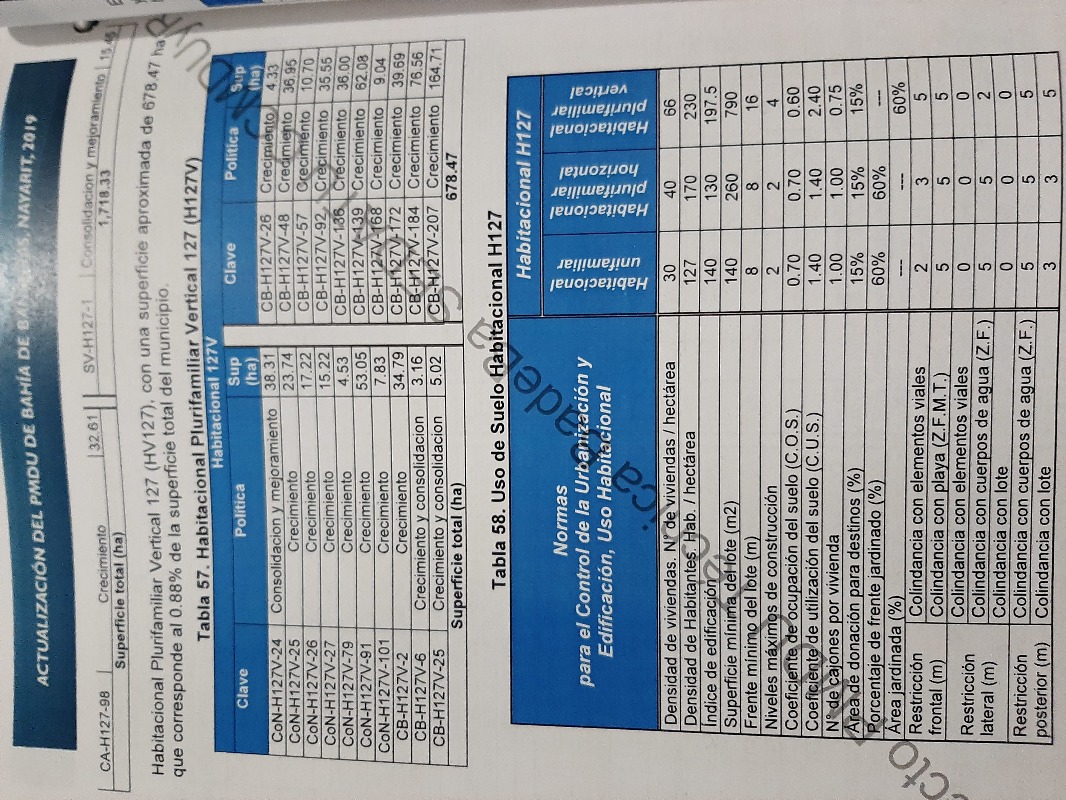 ACTUALIZACIÓN DEL PMDU DE BAHÍA DE BANDERAS, NAYARIT, 2019
CA-H127-98 Crecimiento 32.61 SV-H127-1 Consolidacion y mejoramiento 15.45
Superficie total (ha) 1,718.33
Habitacional Plurifamiliar Vertical 127 (HV127), con una superficie aproximada de 678.47 ha
que corresponde al 0.88% de la superficie total del municipio.
Tabla 57. Habitacional Plurifamiliar Vertical 127 (H127V)
Habitacional 127V
Clave Politica Sup (ha) Clave Politica Sup (ha)
CoN-H127V-24 Consolidacion y mejoramiento 38.31 CB-H127V-26 Crecimiento 4.33
CoN-H127V-25 Crecimiento 23.74 CB-H127V-48 Crecimiento 36.95
CoN-H127V-26 Crecimiento 17.22 CB-H127V-57 Crecimiento 10.70
CoN-H127V-27 Crecimiento 15.22 CB-H127V-92 Crecimiento 35.55
CoN-H127V-79 Crecimiento 4.53 CB-H127V-136 Crecimiento 36.00
CoN-H127V-91 Crecimiento 53.05 CB-H127V-139 Crecimiento 62.08
CoN-H127V-101 Crecimiento 7.83 CB-H127V-168 Crecimiento 9.04
CB-H127V-2 Crecimiento 34.79 CB-H127V-172 Crecimiento 39.69
CB-H127V-6 Crecimiento y consolidacion 3.16 CB-H127V-184 Crecimiento 76.56
CB-H127V-25 Crecimiento y consolidacion 5.02 CB-H127V-207 Crecimiento 164.71
Superficie total (ha) 678.47
Tabla 58. Uso de Suelo Habitacional H127
Normas
para el Control de la Urbanización y
Edificación, Uso Habitacional
Habitacional H127
Habitacional unifamiliar
Habitacional plurifamiliar horizontal
Habitacional plurifamiliar vertical
Densidad de viviendas. N. de viviendas / hectárea 30 40 66
Densidad de Habitantes. Hab. / hectárea 127 170 230
Índice de edificación 140 130 197.5
Superficie mínima del lote (m2) 140 260 790
Frente mínimo del lote (m) 8 8 16
Niveles máximos de construcción 2 2 4
Coeficiente de ocupación del suelo (C.O.S.) 0.70 0.70 0.60
Coeficiente de utilización del suelo (C.U.S.) 1.40 1.40 2.40
N° de cajones por vivienda 1.00 1.00 0.75
Área de donación para destinos (%) 15% 15% 15%
Porcentaje de frente jardinado (%) 60% 60% ---
Área jardinada (%) --- --- 60%
Restricción frontal (m) Colindancia con elementos viales 2 3 5
Colindancia con playa (Z.F.M.T.) 5 5 5
Restricción lateral (m) Colindancia con elementos viales 0 0 0
Colindancia con cuerpos de agua (Z.F.) 5 5 2
Colindancia con lote 0 0 0
Restricción posterior (m) Colindancia con cuerpos de agua (Z.F.) 5 5 5
Colindancia con lote 3 3 5